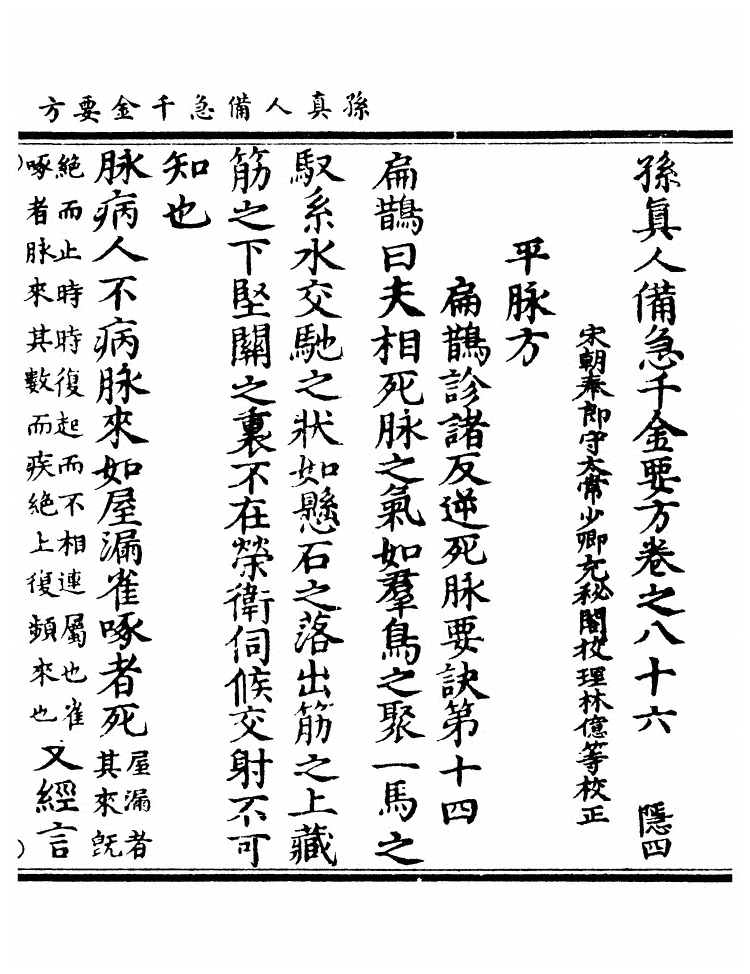 孫真人備急千金要方
孫眞人備急千金要方卷之八十六 隱四
宋朝奉郎守太常少卿充秘閣校理林億等校正
平脉方
扁鵲診諸反逆死脉要訣第十四
扁鵲曰夫相死脉之氣如羣鳥之聚一馬之
馭系水交馳之狀如懸石之落出筋之上藏
筋之下堅關之裏不在榮衛伺候交射不可
知也
脉病人不病脉來如屋漏雀啄者死 屋漏者
其來旣
絕而止時時復起而不相連屬也雀
啄者脉來其數而疾絕上復頻來也 又經言